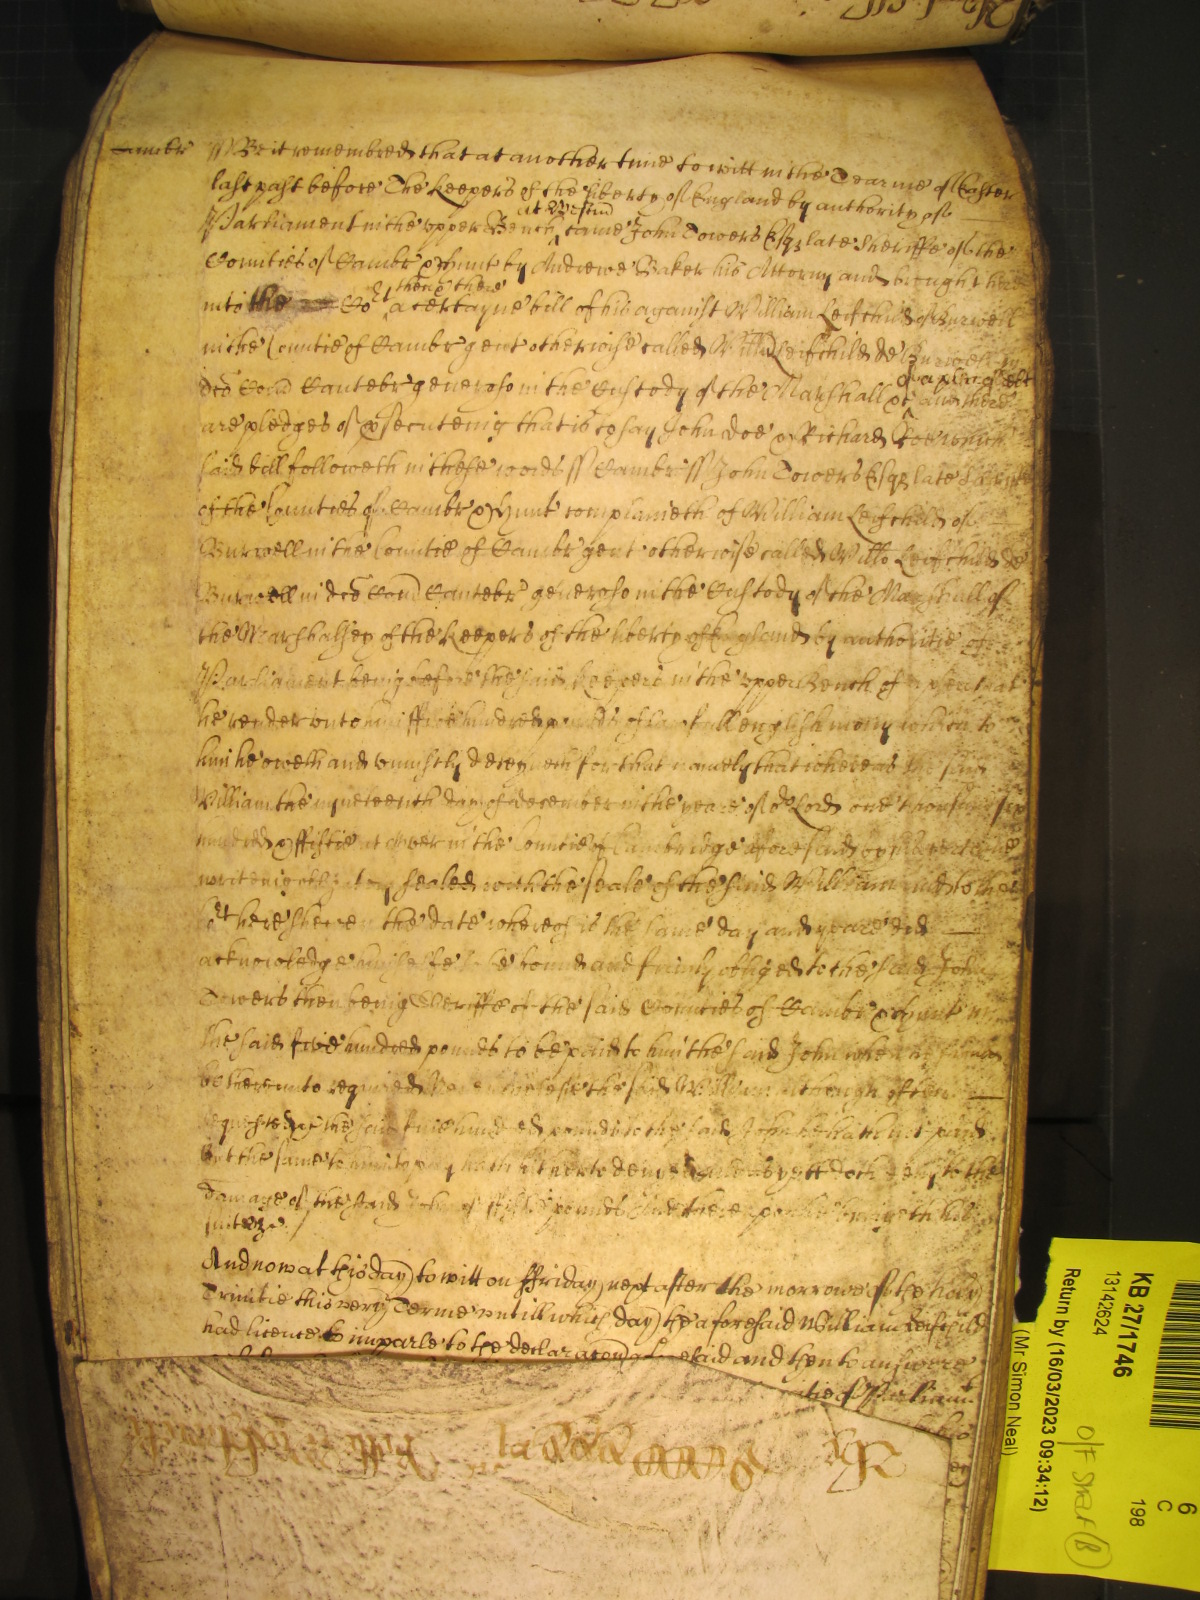 Cambr
ss Be it remembred that at another time to witt in the Tearme of Easter
last past before The Keepers of the liberty of England by authority of
Parliament in the upper Bench at Westm came John Towers Esqr late Sheriffe of the
Counties of Cambr & Hunt by Andrewe Baker his Attorny and brought here
into the Cort then & there a certayne bill of his against William Leifchild of Burwell
in the Countie of Cambr gent otherwise called Willo Leifchild de Burwell in
dco Com Cantebr generoso in the Custody of the Marshall &c of a plea of debt and there
are pledges of prsecuteing that is to say John Doe & Richard Roe which
said bill followeth in these words ss Cambr ss John Towers Esqr late Sheriffe
of the Counties of Cambr & Hunt complaineth of William Leifchild of
Burwell in the Countie of Cambr gent otherwise called Willo Leifchild de
Burwell in dco Com Cantebr generoso in the Custody of the Marshall of
the Marshalsey of the Keepers of the liberty of England by authoritie of
Parliament being before the said Keepers in the upper Bench of a plea that
he render unto him ffive hundred pounds of lawfull english mony which to
him he oweth and uniustly deteyneth for that namely that whereas the said
William the nyneteenth day of december in the yeare of or Lord one thousand six
hundred & ffiftie at Over in the Countie of Cambridge aforesaid by his certeine
writeing obligatory sealed with the seale of the said William and to the
Cort here shewen the date whereof is the same day and yeare did
acknowledge himselfe to be bound and firmly obliged to the said John
Towers then being Sheriffe of the said Counties of Cambr & Hunt in
the said five hundred pounds to be paid to him the said John when he should
be thereunto required Neverthelesse the said William although often
requested &c the said five hundred pounds to the said John he hath not paid
but the same to him to pay hath hitherto denyed and as yett doth deny to the
damage of the said John of ffiftie pounds And thereupon he bringeth his
suite &c
And now at this day to witt on ffriday next after the morrowe of the holy
Trinitie this very Terme untill which day the aforesaid William Leifchild
had licence to imparle to the declaracon aforesaid and then to answere
itie of Parliamt
KB 27/1746
13142624
Return by (16/03/2023 09:34:12)
(Mr Simon Neal)
6
C
198